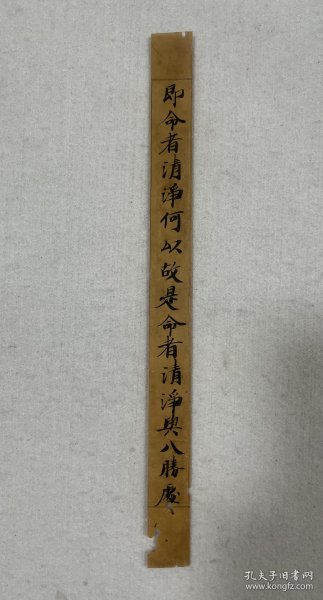 即命者清淨何以故是命者清淨與八勝處
孔夫子旧书网
kongfz.com